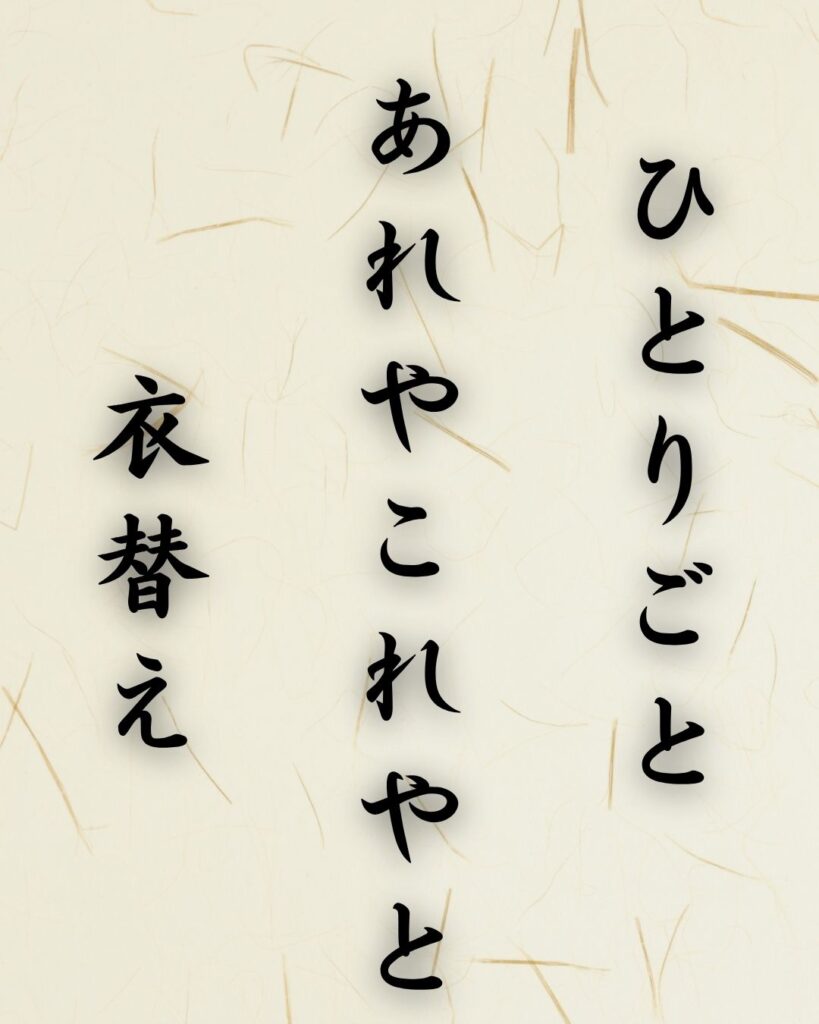 ひとりごと
あれやこれやと
衣替え